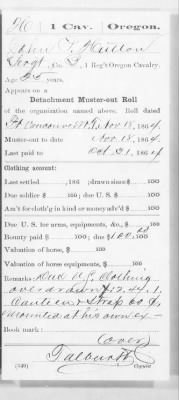 H | 1 Cav. | Oregon.
John T. Mullon
Sergt, Co. D, 1 Reg't Oregon Cavalry.
Age 25 years.
Appears on a
Detachment Muster-out Roll
of the organization named above. Roll dated
Ft Vancouver W.T. Nov 18, 1864.
Muster-out to date Nov 18, 1864.
Last paid to Oct. 31, 1864
Clothing account:
Last settled , 186 ; drawn since $ 100
Due soldier $ 100; due U. S. $ 100
Am't for cloth'g in kind or money adv'd $ 100
Due U. S. for arms, equipments, &c., $ 100
Bounty paid $ 100; due $ 100, 00 100
Valuation of horse, $ 100
Valuation of horse equipments, $ 100
Remarks: Due U.S. Clothing
overdrawn $12.44. 1
Canteen & Strap 60 ¢,
at his own ex-
Book mark:
(over)
Talbott
(349) Copyist